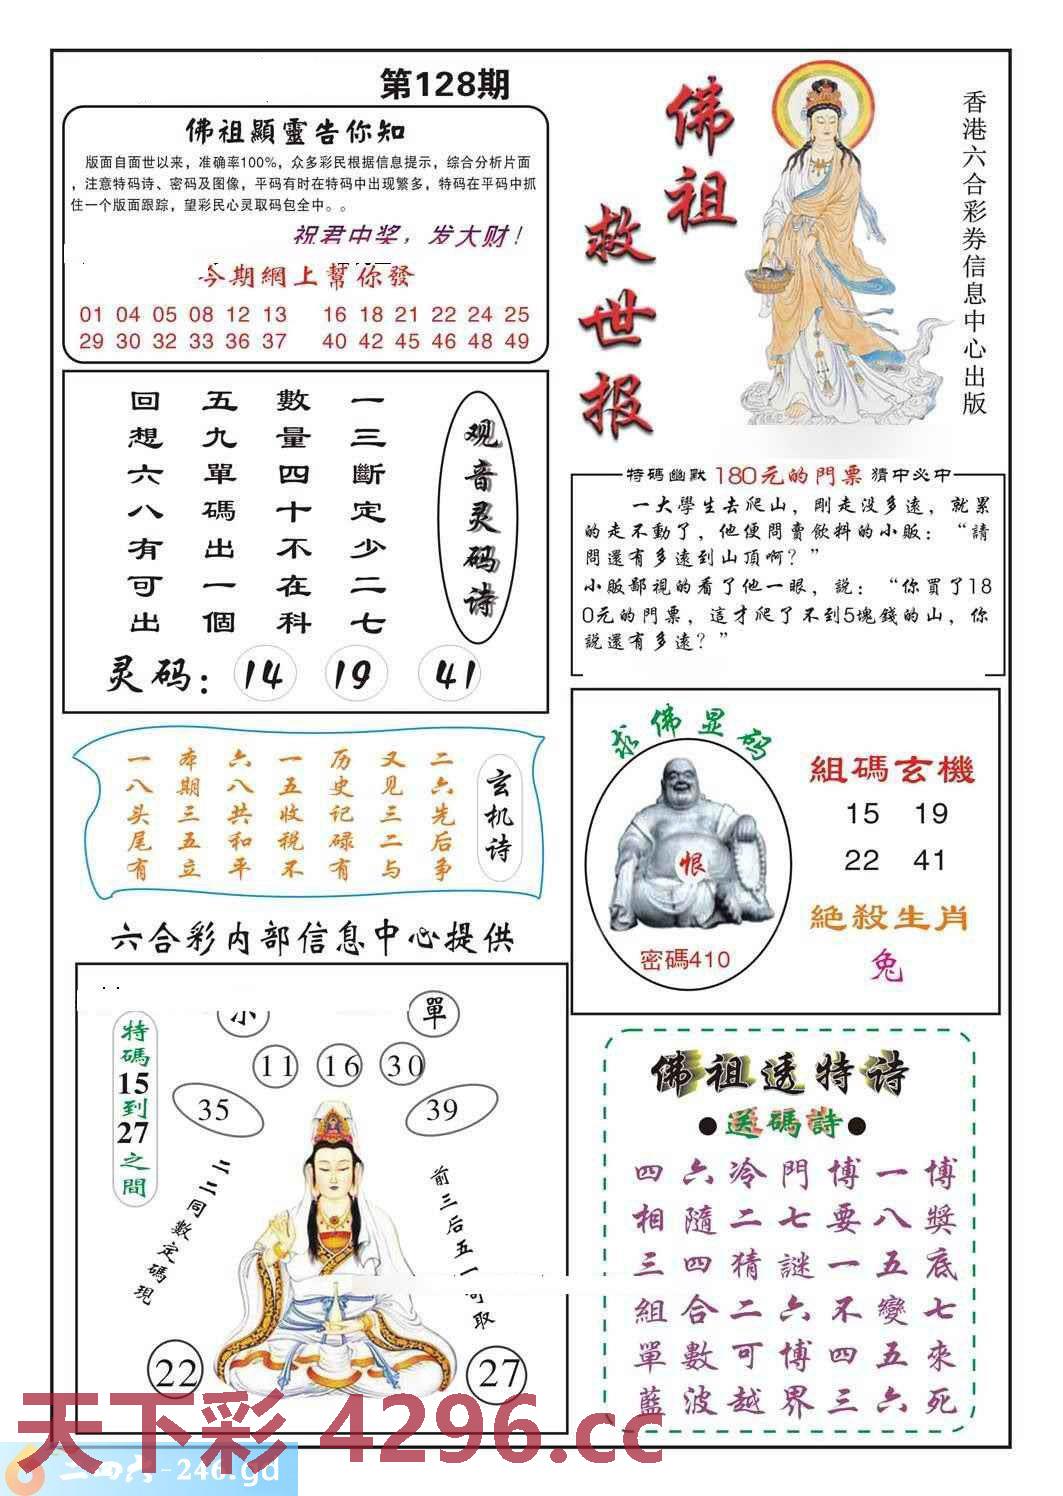 第128期
佛祖顯靈告你知
版面自面世以来，准确率100%，众多彩民根据信息提示，综合分析片面
，注意特码诗、密码及图像，平码有时在特码中出现繁多，特码在平码中抓
住一个版面跟踪，望彩民心灵取码包全中。。
祝君中奖，发大财！
今期網上幫你發
01 04 05 08 12 13 16 18 21 22 24 25
29 30 32 33 36 37 40 42 45 46 48 49
佛祖
救世报
香港六合彩券信息中心出版
观音灵码诗
一三斷定少二七
數量四十不在科
五九單碼出一個
回想六八有可出
灵码：14 19 41
特碼幽默 180元的門票 猜中必中
一大學生去爬山，剛走没多遠，就累
的走不動了，他便問賣飲料的小販：“請
問還有多遠到山頂啊？”
小販鄙視的看了他一眼，説：“你買了18
0元的門票，這才爬了不到5塊錢的山，你
説還有多遠？”
玄机诗
二六先后争
又见三二与
历史记碌有
一五收税不
六八共和平
本期三五立
一八头尾有
求佛显码
恨
密碼410
組碼玄機
15 19
22 41
絶殺生肖
兔
六合彩内部信息中心提供
單
11 16 30
35 39
特碼15到27之間
二二同數定碼現
前三后五一
取
22 27
佛祖透特诗
●送碼詩●
四六冷門博一博
相隨二七要八獎
三四猜謎一五底
組合二六不變七
單數可博四五來
藍波越界三六死
天下彩 4296.cc
二四六-246.gd